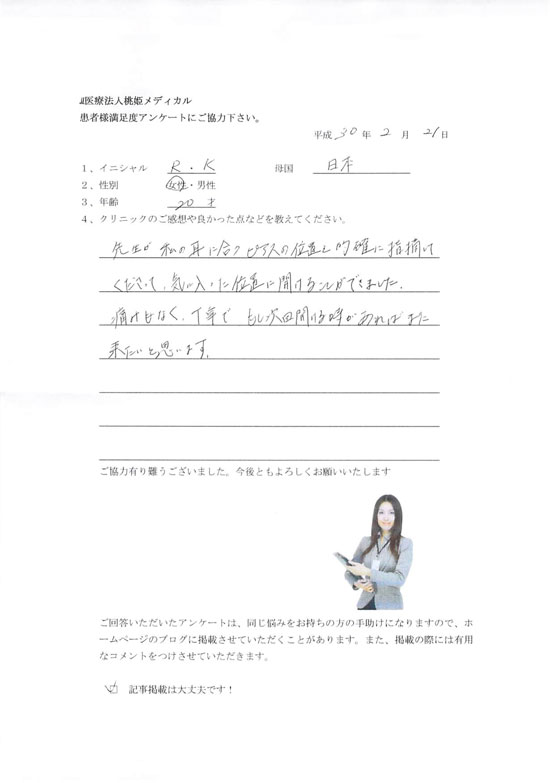 医療法人桃姫メディカル
患者様満足度アンケートにご協力下さい。
平成 30 年 2 月 21 日
1、イニシャル R.K 母国 日本
2、性別 女性・男性
3、年齢 20才
4、クリニックのご感想や良かった点などを教えてください。
先生が私の耳に合うピアスの位置を的確に指摘して
くださって、気に入った位置に開けることができました。
痛みもなく、丁寧で もし次回開ける時があればまた
来たいと思います。
ご協力有り難うございました。今後ともよろしくお願いいたします
ご回答いただいたアンケートは、同じ悩みをお持ちの方の手助けになりますので、ホ
ームページのブログに掲載させていただくことがあります。また、掲載の際には有用
なコメントをつけさせていただきます。
記事掲載は大丈夫です！